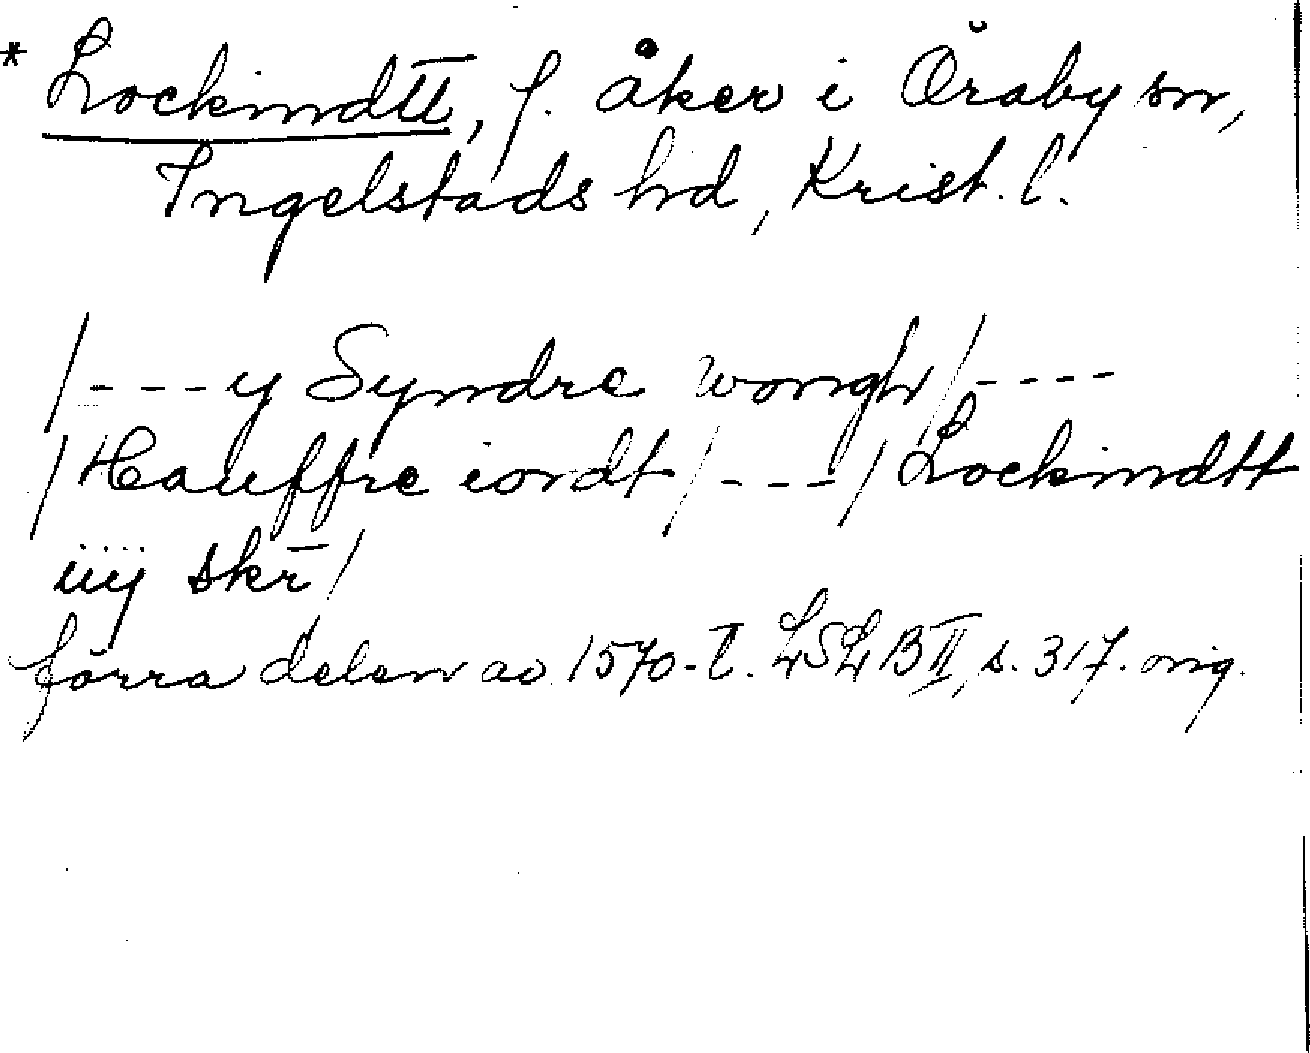 * Lockindtt, f. åker i Öraby sn,
Ingelstads hd, Krist. l.
/---y Syndre wongh/----
/Hauffre iordt/---/Lockindtt
iiij skr̄/
förra delen av 1570-t. LSLB II, s. 317. orig.